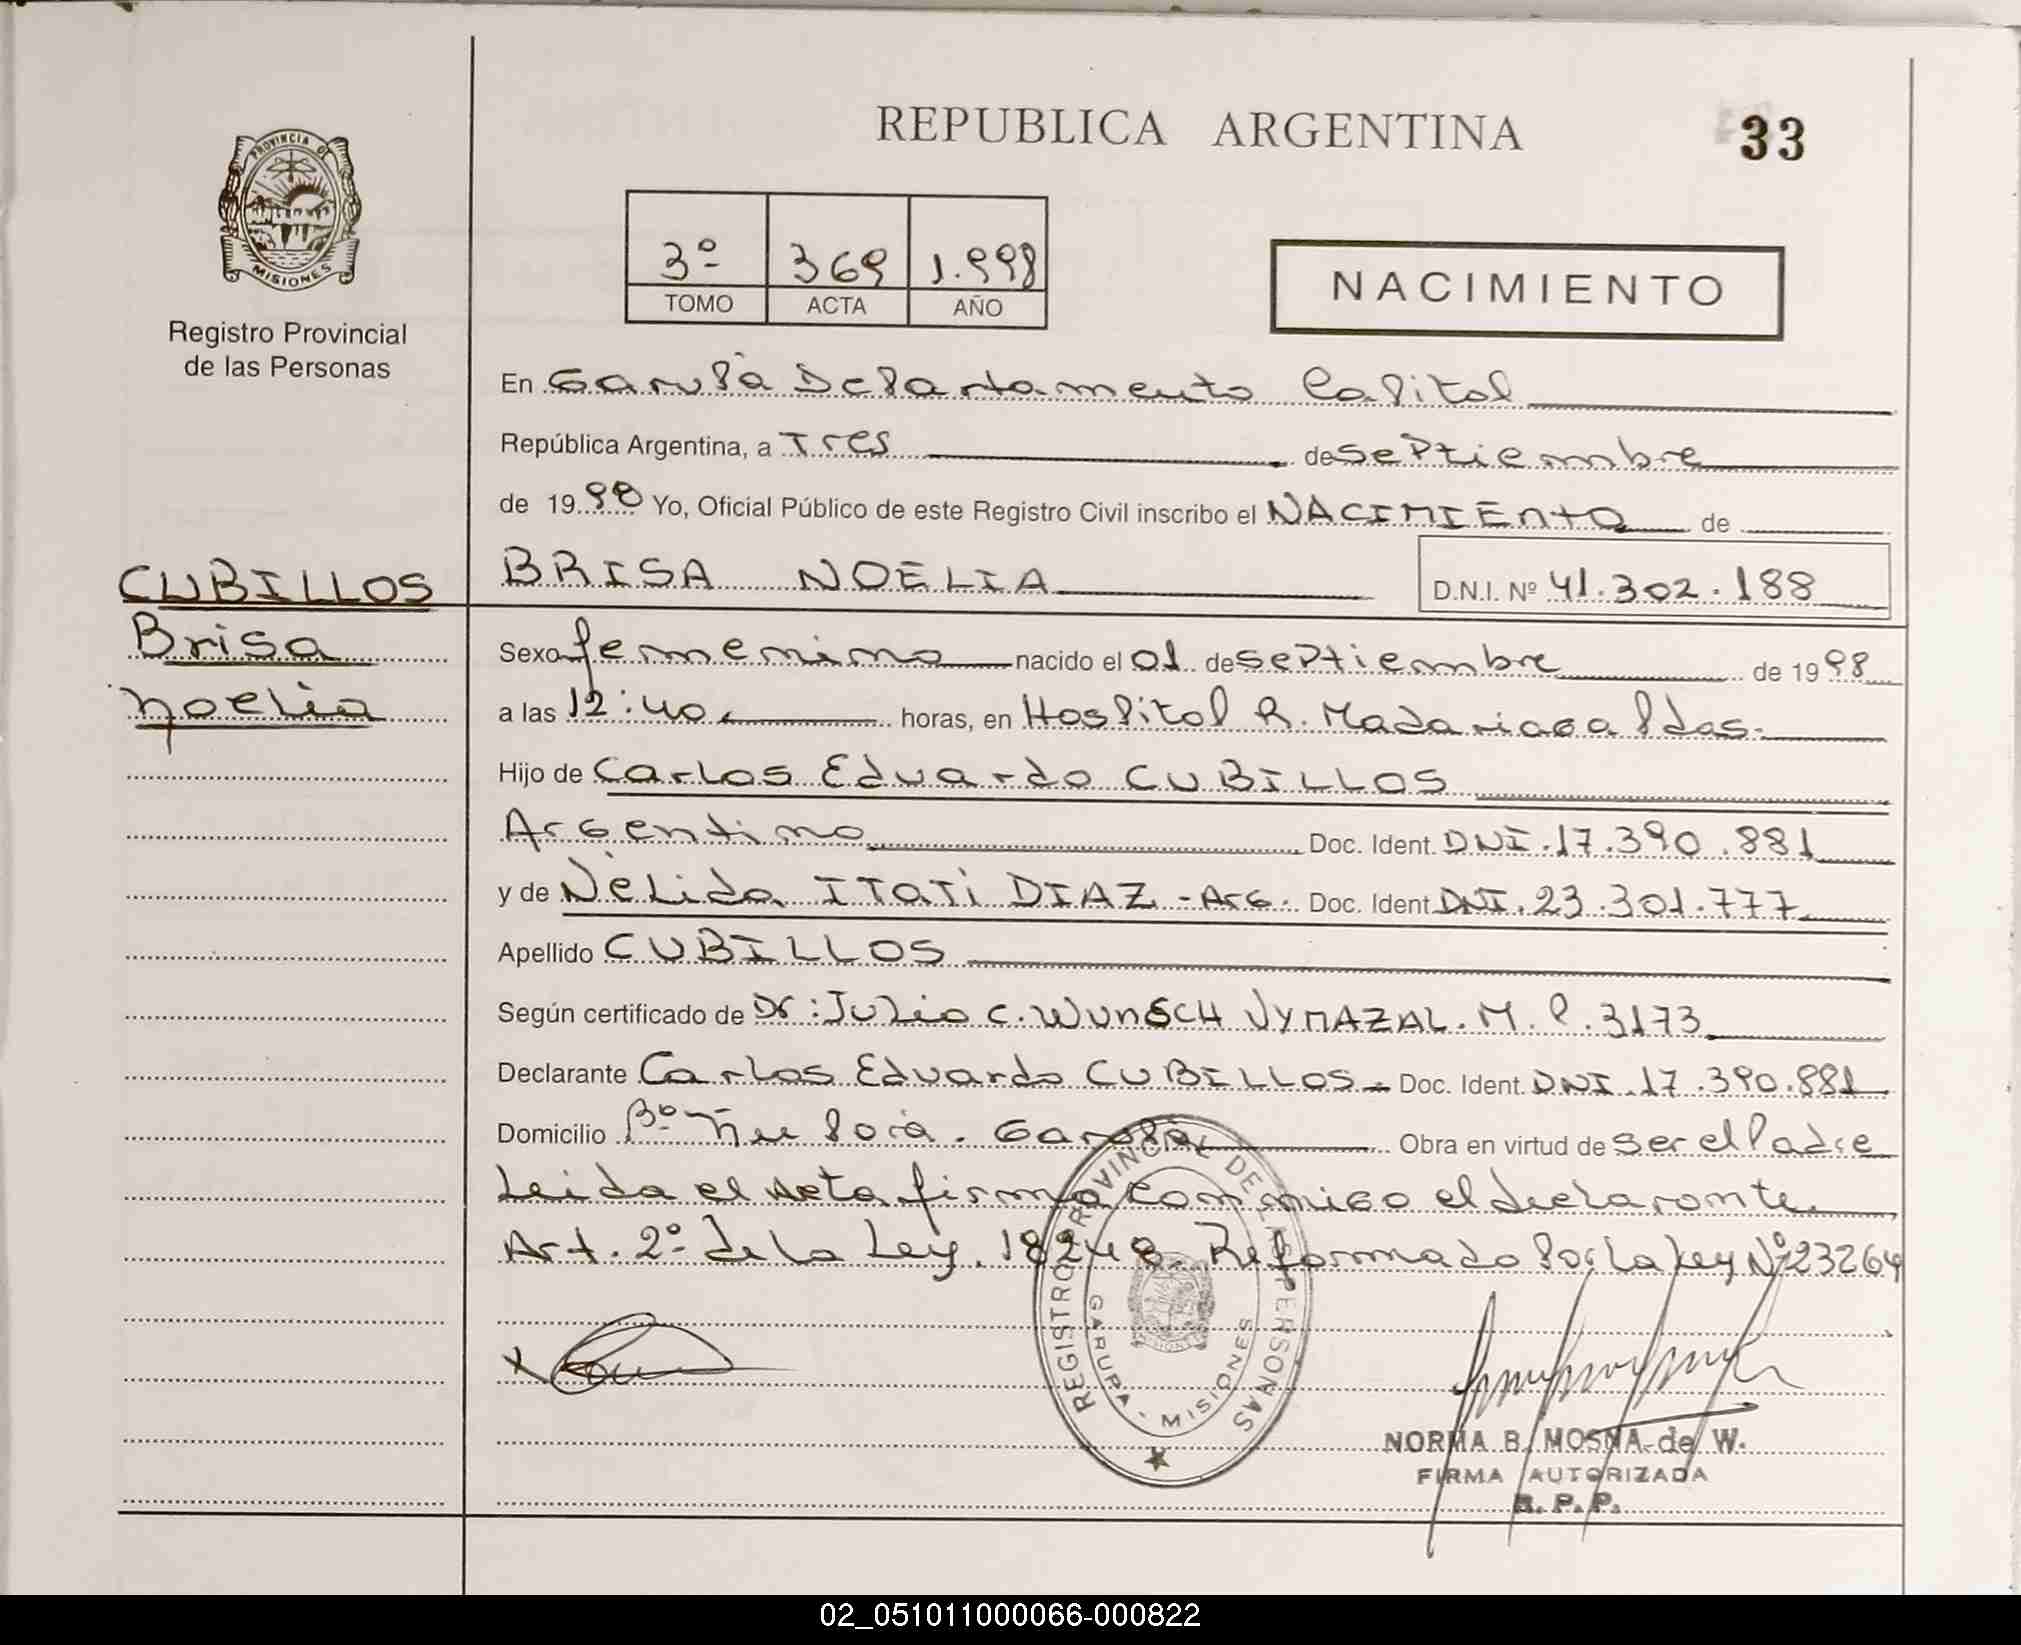 REPUBLICA ARGENTINA
33
PROVINCIA DE
MISIONES
Registro Provincial
de las Personas
3º 369 1.998
TOMO ACTA AÑO
NACIMIENTO
En Garupá Departamento Capital
República Argentina, a Tres de Septiembre
de 19 98 Yo, Oficial Público de este Registro Civil inscribo el NACIMIENTO de
CUBILLOS
Brisa
Noelia
BRISA NOELIA D.N.I. Nº 41.302.188
Sexo femenino nacido el 01 de Septiembre de 19 98
a las 12:40 horas, en Hospital R. Madariaga Pdas.
Hijo de Carlos Eduardo CUBILLOS
Argentino Doc. Ident. DNI.17.390.881
y de Nélida ITATÍ DIAZ - Arg. Doc. Ident. DNI.23.301.777
Apellido CUBILLOS
Según certificado de Dr: Julio C. WUNSCH VYMAZAL. M.P. 3173
Declarante Carlos Eduardo CUBILLOS Doc. Ident. DNI.17.390.881
Domicilio Bº Ñu Porá. Garupá Obra en virtud de ser el Padre
Leida el acta firma conmigo el declarante.
Art. 2º de la Ley. 18248. Reformado Por la Ley Nº 23264
REGISTRO PROVINCIAL DE LAS PERSONAS
GARUPA - MISIONES
NORMA B. MOSNA de W.
FIRMA AUTORIZADA
R. P. P.
02_051011000066-000822